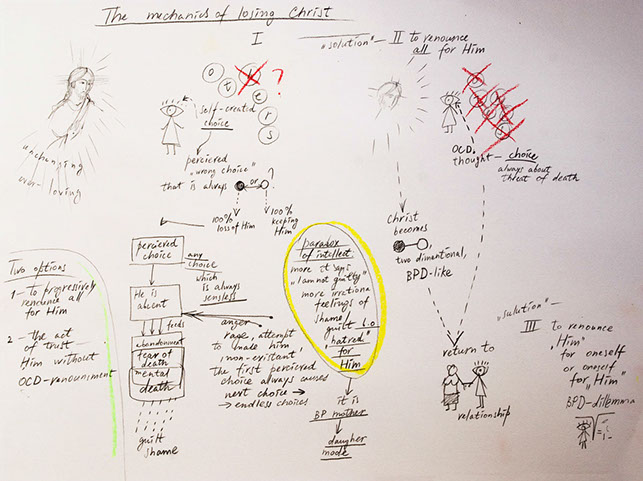 The mechanics of losing Christ
I
"solution" - II to renounce
all for Him
unchanging
ever-loving
o t e r s
?
self-created
choice
percieved
"wrong choice"
that is always
or
?
100%
loss of Him
100%
keeping
Him
OCD
thought - choice
always about
threat of death
Christ
becomes
two dimentional,
BPD-like
percieved
choice
any
choice
which is
always
senseless
He is
absent
feeds
abandonment
fear of
death
mental
death
guilt
shame
anger
rage, attempt
to make him
"non-existant"
the first percieved
choice always causes
next choice →
→ endless choices
paradox
of intellect:
more it says
"I am not guilty"
more irrational
feelings of
shame/
guilt b.o
"hatred"
for
Him
it is
BP mother
daugher
mode
return to
relationship
"solution" -
III to renounce
"Him"
for oneself
or oneself
for "Him"
BPD-dilemma
Two options
1 - To progressively
renounce all
for Him
2 - the act
of trust -
Him without
OCD-renouncment